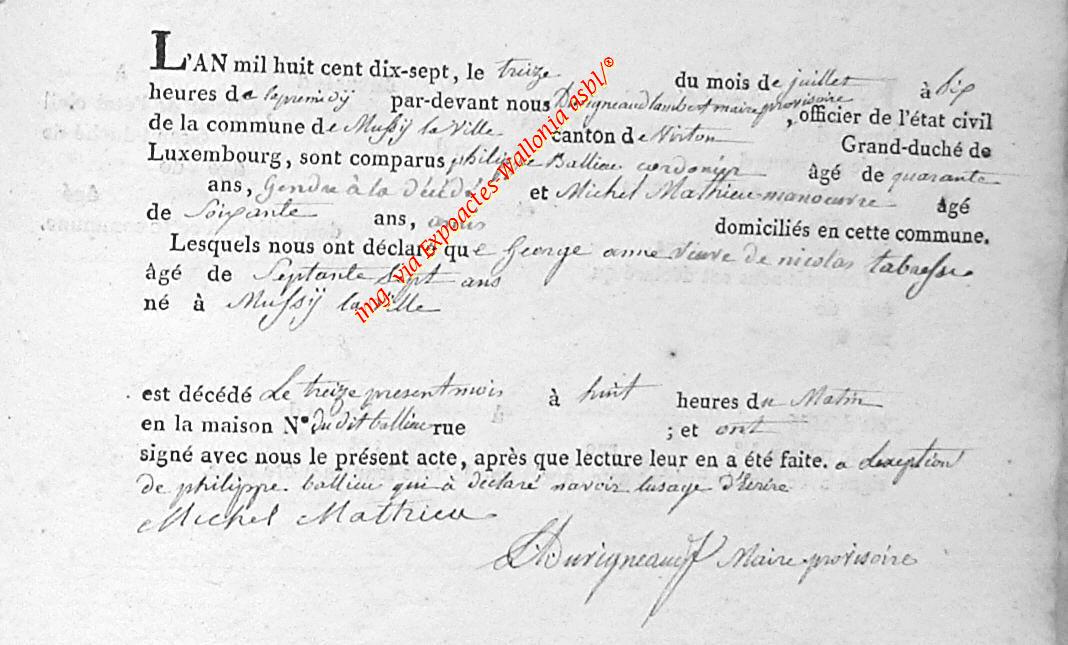 L'AN mil huit cent dix-sept, le treize du mois de juillet à six
heures de lapremidÿ par-devant nous Duvigneaud lambert maire provisoire, officier de l'état civil
de la commune de Mussÿ la Ville canton de Virton Grand-duché de
Luxembourg, sont comparus philippe Ballieu cordonÿr âgé de quarante
ans, Gendre à la décédé et Michel Mathieu manoeuvre âgé
de Soixante ans, domiciliés en cette commune.
Lesquels nous ont déclaré que George anne veuve de nicolas tabresse
âgé de Septante Sept ans
né à Mussÿ la Ville
est décédé Le treize present mois à huit heures du Matin
en la maison N° du dit ballieu rue ; et ont
signé avec nous le présent acte, après que lecture leur en a été faite. a Lexeption
de philippe ballieu qui à déclaré navoir lusage d'Ecrire
Michel Mathieu
L Duvigneaud Maire provisoire
img. via Expoactes Wallonia asbl/®